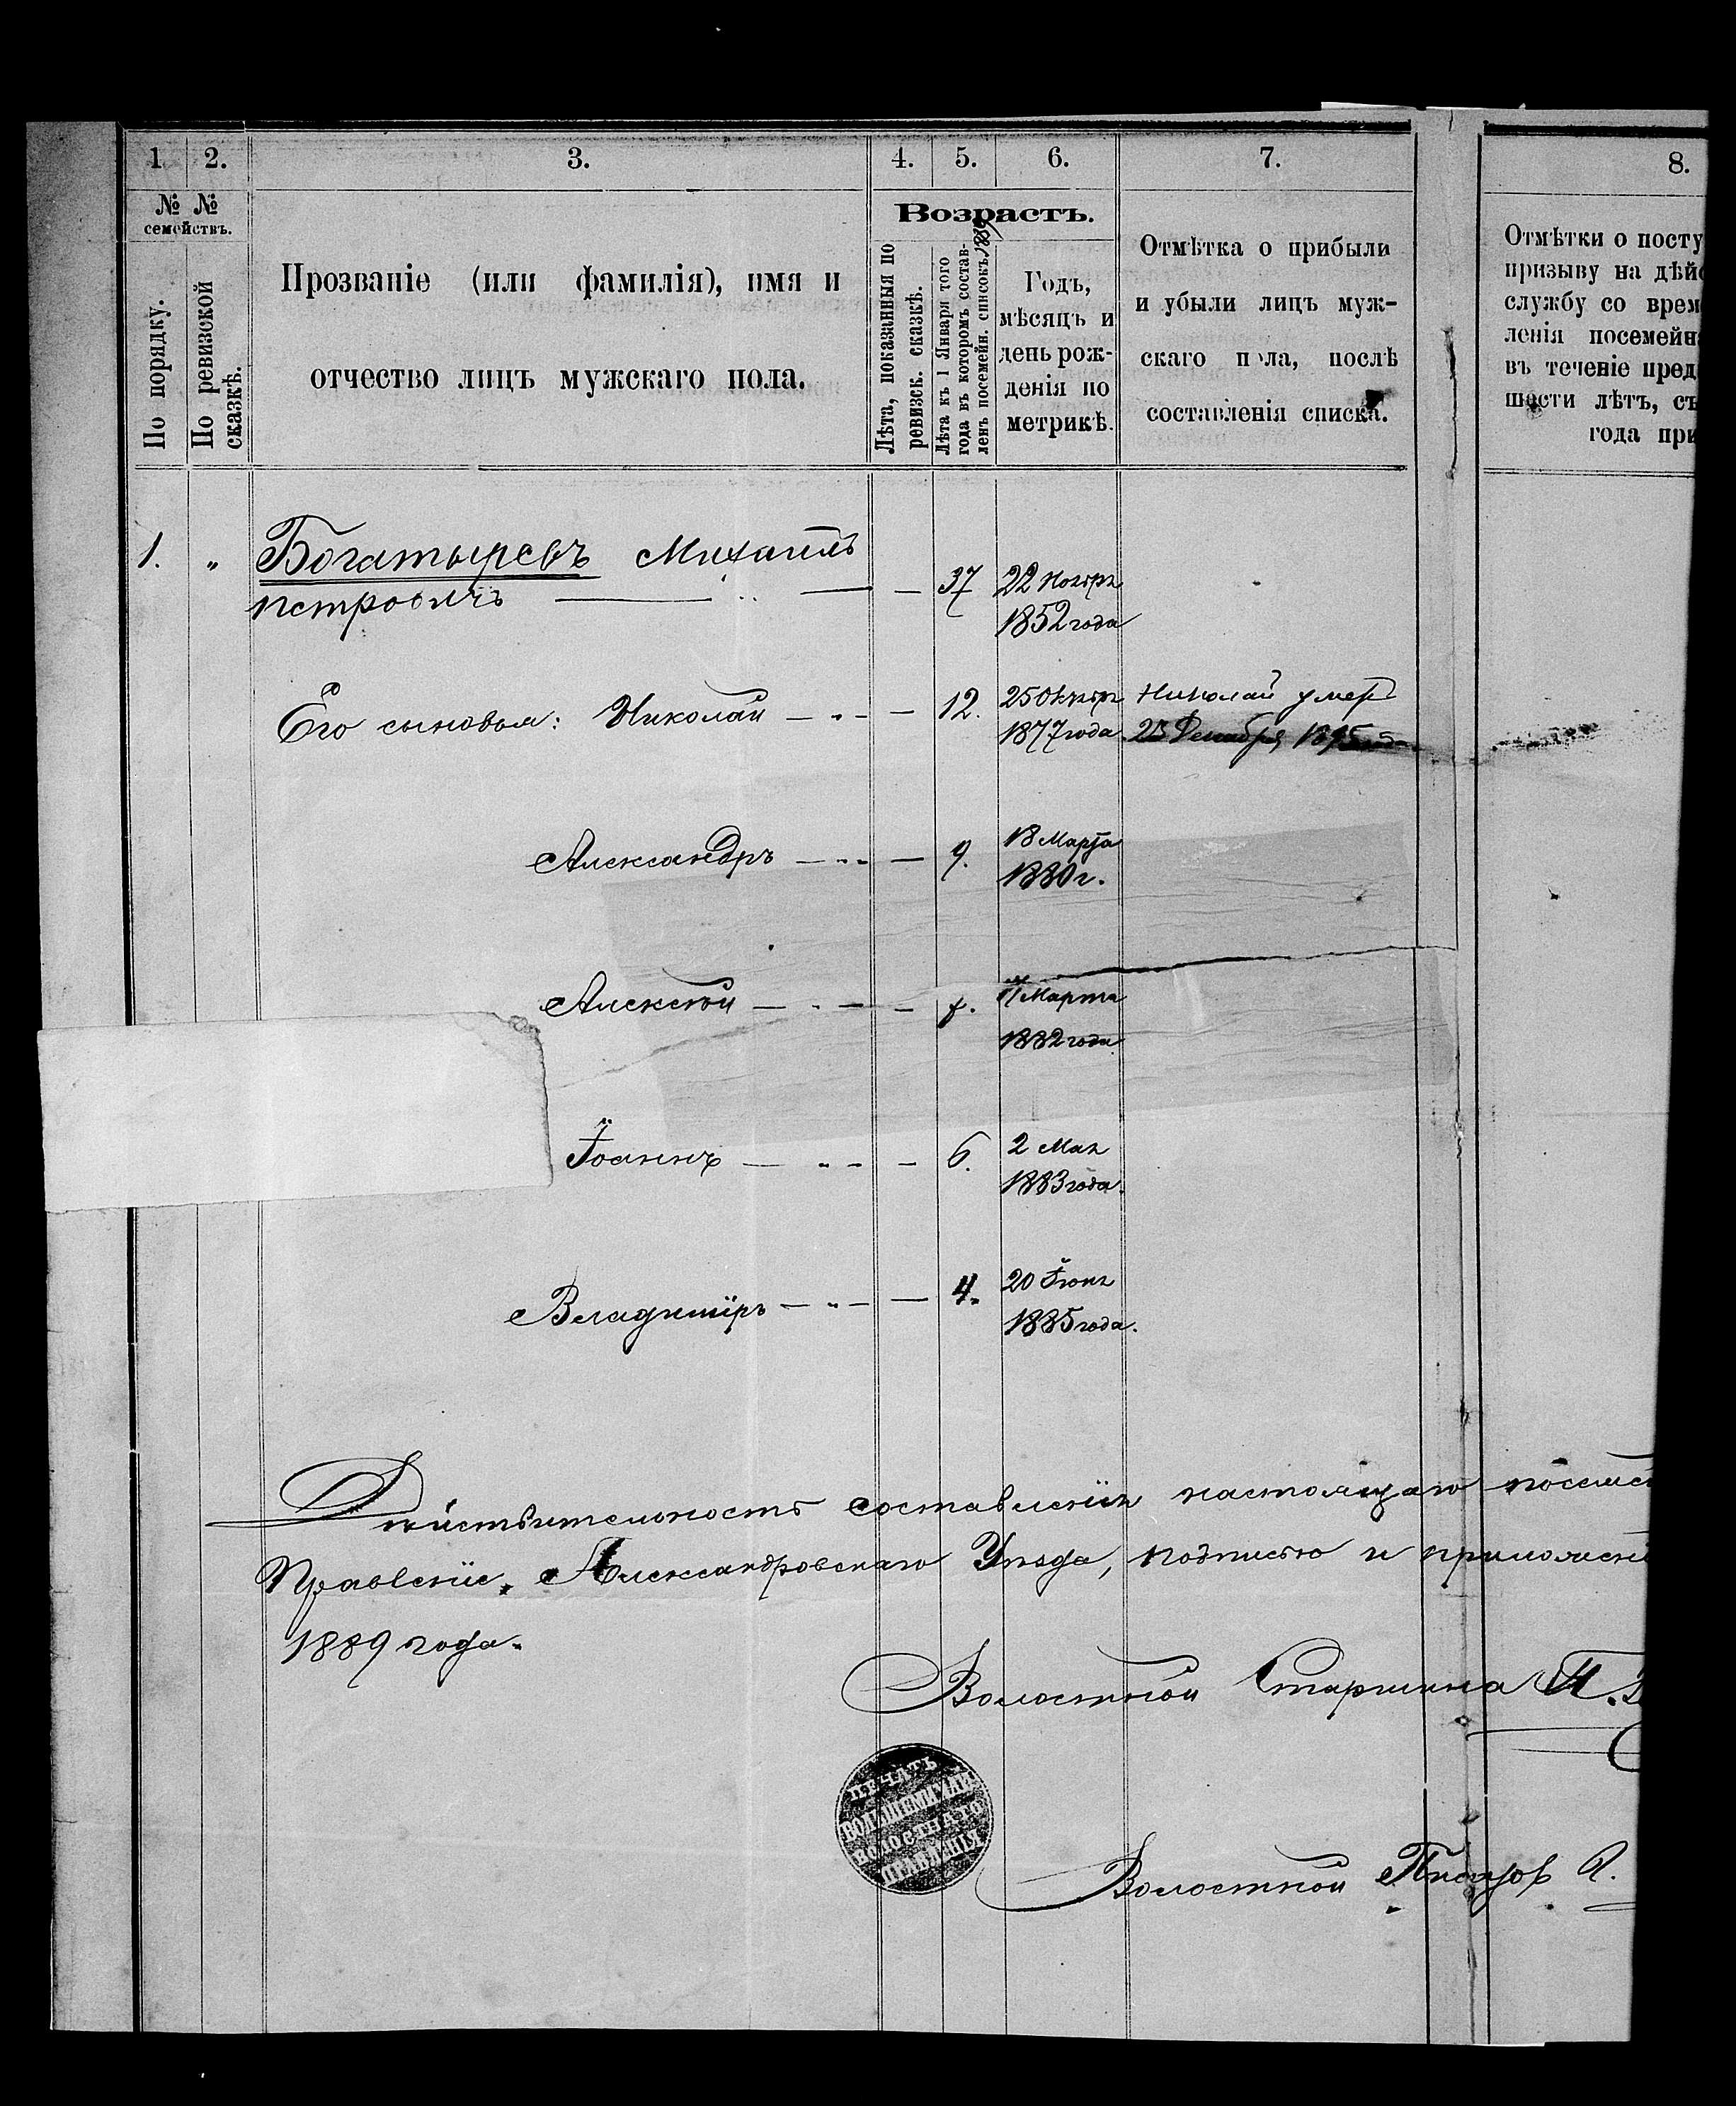 1. 2. 3. 4. 5. 6. 7. 8.
№ № семействъ.
По порядку.
По ревизской сказкѣ.
Прозваніе (или фамилія), имя и
отчество лицъ мужскаго пола.
Возрастъ.
Лѣта, показанныя по
ревизск. сказкѣ.
Лѣта къ 1 Января того
года въ которомъ состав-
ленъ посемейн. списокъ
Годъ,
мѣсяцъ и
день рож-
денія по
метрикѣ.
Отмѣтка о прибыли
и убыли лицъ муж-
скаго пола, послѣ
составленія списка.
Отмѣтки о посту
призыву на дѣйс
службу со врем
ленія посемейн
въ теченіе пред
шести лѣтъ, съ
года при
1. „ Богатыревъ Михаилъ
Петровичъ — 37 22 Ноября
1852 года
Его сыновья: Николай — „ — — 12. 25 Октябр Николай умер
1877 года 23 Декабря 1895
Александръ — „ — — 9. 18 Марта
1880 г.
Алексѣй — „ — — 7. 11 Марта
1882 года
Іоаннъ — „ — — 6. 2 Мая
1883 года.
Владиміръ — „ — — 4. 20 Іюня
1885 года.
Дѣйствительность составленія настоящаго посемей
Правленіе, Александровскаго Уѣзда, подписью и приложені
1889 года.
Волостной Старшина М.
ПЕЧАТЬ
ВОЛОСТНАГО
ПРАВЛЕНІЯ
Волостной Писарь А.